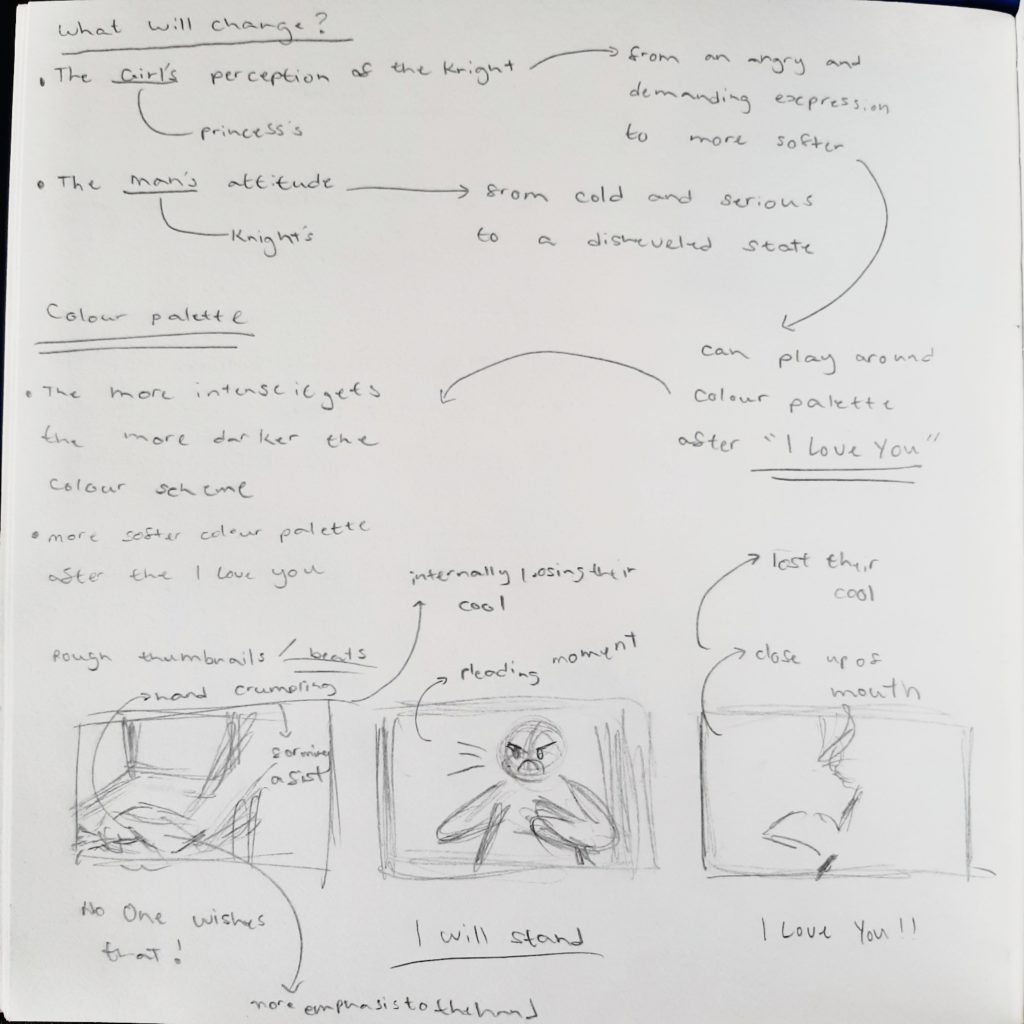 What will change?
• The Girl's perception of the Knight
princess's
from an angry and
demanding expression
to more softer
• The man's attitude
Knight's
from cold and serious
to a disheveled state
can play around
colour palette
after "I Love You"
Colour palette
• The more intense it gets
the more darker the
colour scheme
• more softer colour palette
after the I love you
Rough thumbnails / beats
hand crumpling
forming
a fist
internally loosing their
cool
pleading moment
lost their
cool
close up of
mouth
No One wishes
that!
I will stand
I Love You!!
more emphasis to the hand